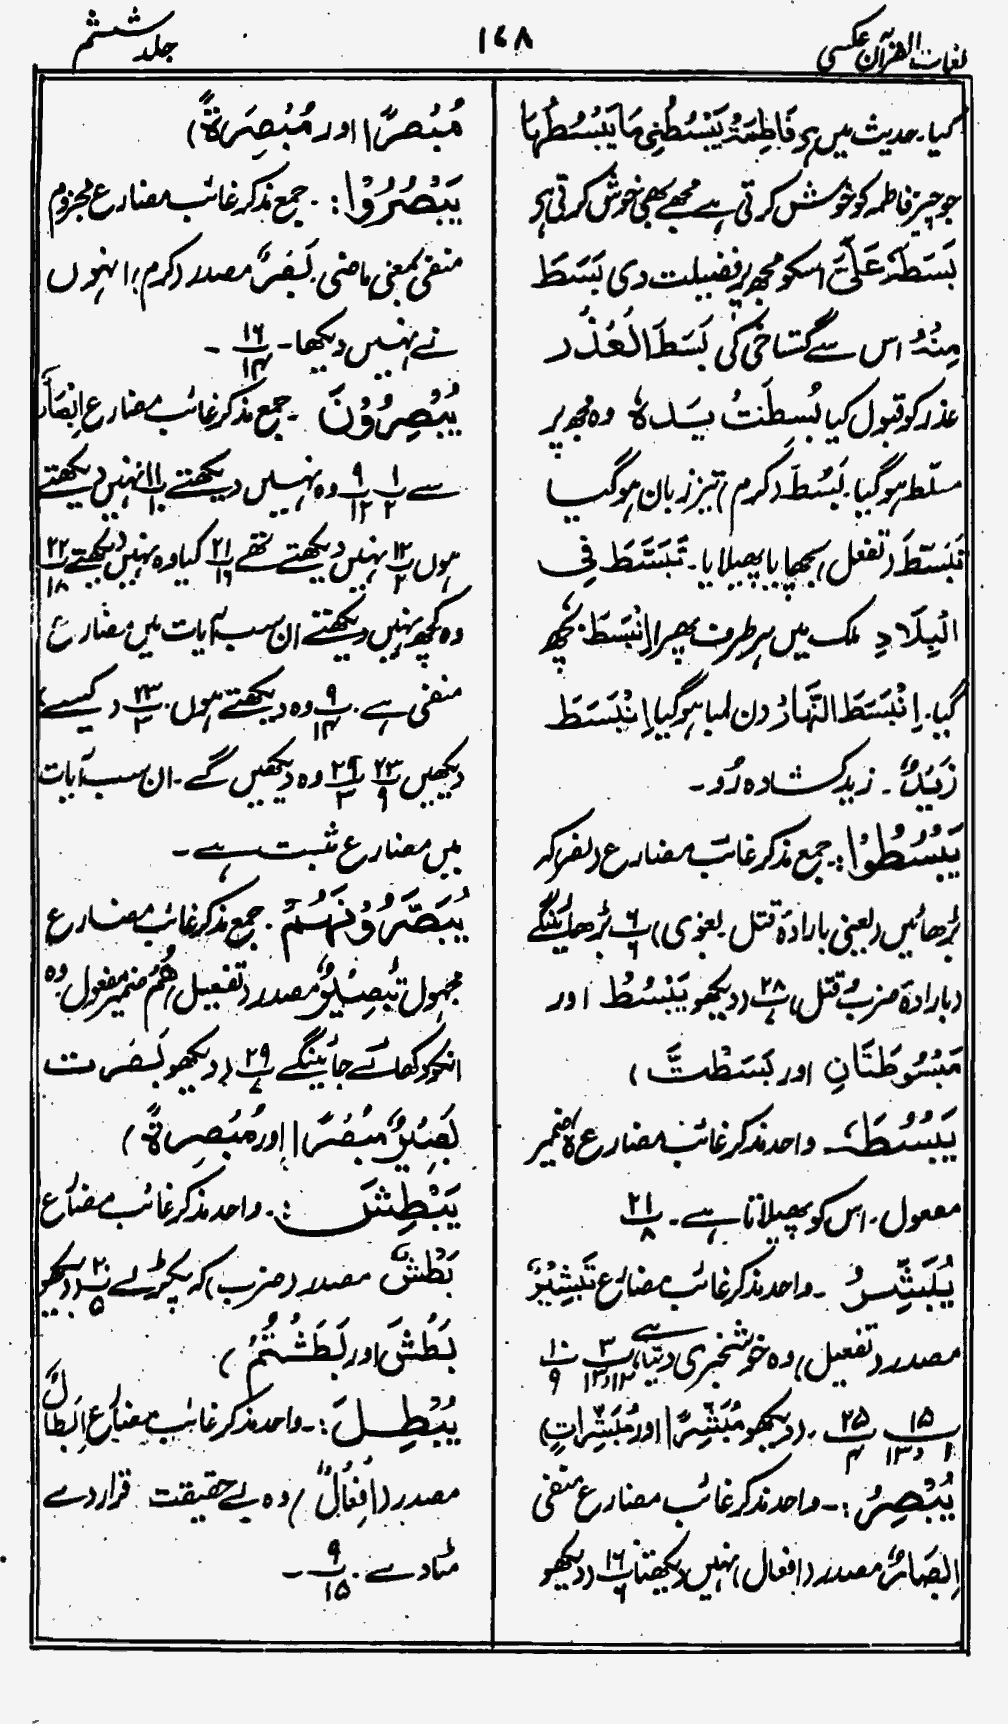 لغات القرآن عکسی
۱۶۸
جلد ششم
گیا۔ حدیث میں ہے فَاطِمَۃُ یَبْسُطُنِی مَا یَبْسُطُہَا
جو چیز فاطمہ کو خوش کرتی ہے مجھے بھی خوش کرتی ہے
بَسَطَہٗ عَلَیَّ اسکو مجھ پر فضیلت دی بَسَطَ
مِنْہُ اس سے گستاخی کی بَسَطَ الْعُذْر
عذر کو قبول کیا بُسِطَتْ یَدہٗ وہ مجھ پر
مسلّط ہو گیا۔ بَسُطَ (کرم) تیز زبان ہو گیا
تَبَسَّطَ (تفعل) بچھایا پھیلایا۔ تَبَسَّطَ فِی
الْبِلَادِ ملک میں ہر طرف پھرا اِنْبَسَطَ بچھ
گیا۔ اِنْبَسَطَ النَّہَارُ دن لمبا ہو گیا اِنْبَسَطَ
زَیْدٌ۔ زید کشادہ رُو۔
یَبْسُطُوْا:۔ جمع مذکر غائب مضارع (نصر) کہ
بڑھائیں (یعنی بارادۂ قتل۔ بغوی) پ ۶/۶ بڑھائینگے
(بارادۂ ضرب و قتل) پ ۲۸/۷ (دیکھو یَبْسُطُ اور
مَبْسُوْطَتَانِ اور بَسَطْتَّ)
یَبْسُطُہٗ۔ واحد مذکر غائب مضارع ہٗ ضمیر
مفعول۔ اس کو پھیلاتا ہے۔ پ ۲۱/۸
یُبَشِّرُ۔ واحد مذکر غائب مضارع تَبْشِیْرٌ
مصدر (تفعیل) وہ خوشخبری دیتا ہے پ ۳/۱۲و۱۳ پ ۱۰/۹
پ ۱۵/۱و۱۳ پ ۲۵/۴۔ (دیکھو مُبَشِّرًا اور مُبَشِّرَاتٍ)
یُبْصِرُ:۔ واحد مذکر غائب مضارع منفی
اِبْصَارٌ مصدر (افعال) نہیں دیکھتا پ ۱۶/۶ (دیکھو
مُبْصِرًا اور مُبْصِرَۃً)
یَبْصُرُوْا:۔ جمع مذکر غائب مضارع مجزوم
منفی بمعنی ماضی۔ بَصَرٌ مصدر (کرم) انہوں
نے نہیں دیکھا۔ پ ۱۶/۱۴۔
یُبْصِرُوْنَ۔ جمع مذکر غائب مضارع اِبْصَارٌ
سے پ ۱/۲ پ ۹/۱۲ وہ نہیں دیکھتے پ ۱۱/۱۰ نہیں دیکھتے
ہوں پ ۱۲/۲ نہیں دیکھتے تھے پ ۲۱/۱۶ کیا وہ نہیں دیکھتے پ ۲۲/۱۸
وہ کچھ نہیں دیکھتے ان سب آیات میں مضارع
منفی ہے۔ پ ۹/۱۴ وہ دیکھتے ہوں۔ پ ۲۳/۳ (کیسے)
دیکھیں پ ۲۳/۹ پ ۲۹/۳ وہ دیکھیں گے۔ ان سب آیات
میں مضارع مثبت ہے۔
یُبَصَّرُوْنَہُمْ۔ جمع مذکر غائب مضارع
مجہول تَبْصِیْرٌ مصدر (تفعیل) ھُمْ ضمیر مفعول وہ
انکو دکھائے جائینگے پ ۲۹/۷ (دیکھو بَصُرَت
بَصِیْرٌ مُبْصِرًا اور مُبْصِرَۃً)
یَبْطِشَ:۔ واحد مذکر غائب مضارع
بَطْشٌ مصدر (ضرب) کہ پکڑلے پ ۲۰/۵ (دیکھو
بَطْشَ اور بَطَشْتُمْ)
یُبْطِلَ:۔ واحد مذکر غائب مضارع اِبْطَالٌ
مصدر (اِفْعَالٌ) وہ بے حقیقت قرار دے
مٹادے۔ پ ۹/۱۵۔